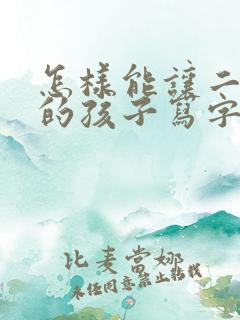 怎樣能讓二
的孩子寫字
比麦當娜
未任同意禁止转載